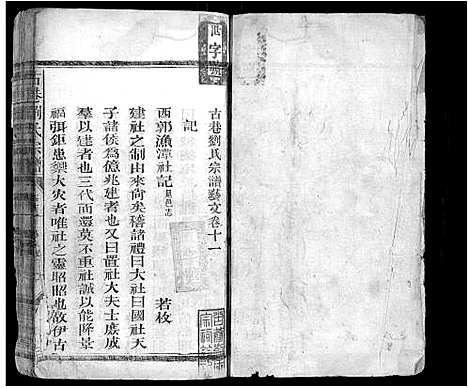 古巷劉氏宗譜藝文卷十一
記
西郭漁潭社記 縣邑志
若枚
建社之制由來尚矣稽諸禮曰大社曰國社天
子諸侯為億兆建者也又曰置社大夫士庶成
羣以建者也三代而還莫不重社誠以能降景
福弭鉅患禦大災者唯社之靈昭昭也故伊古